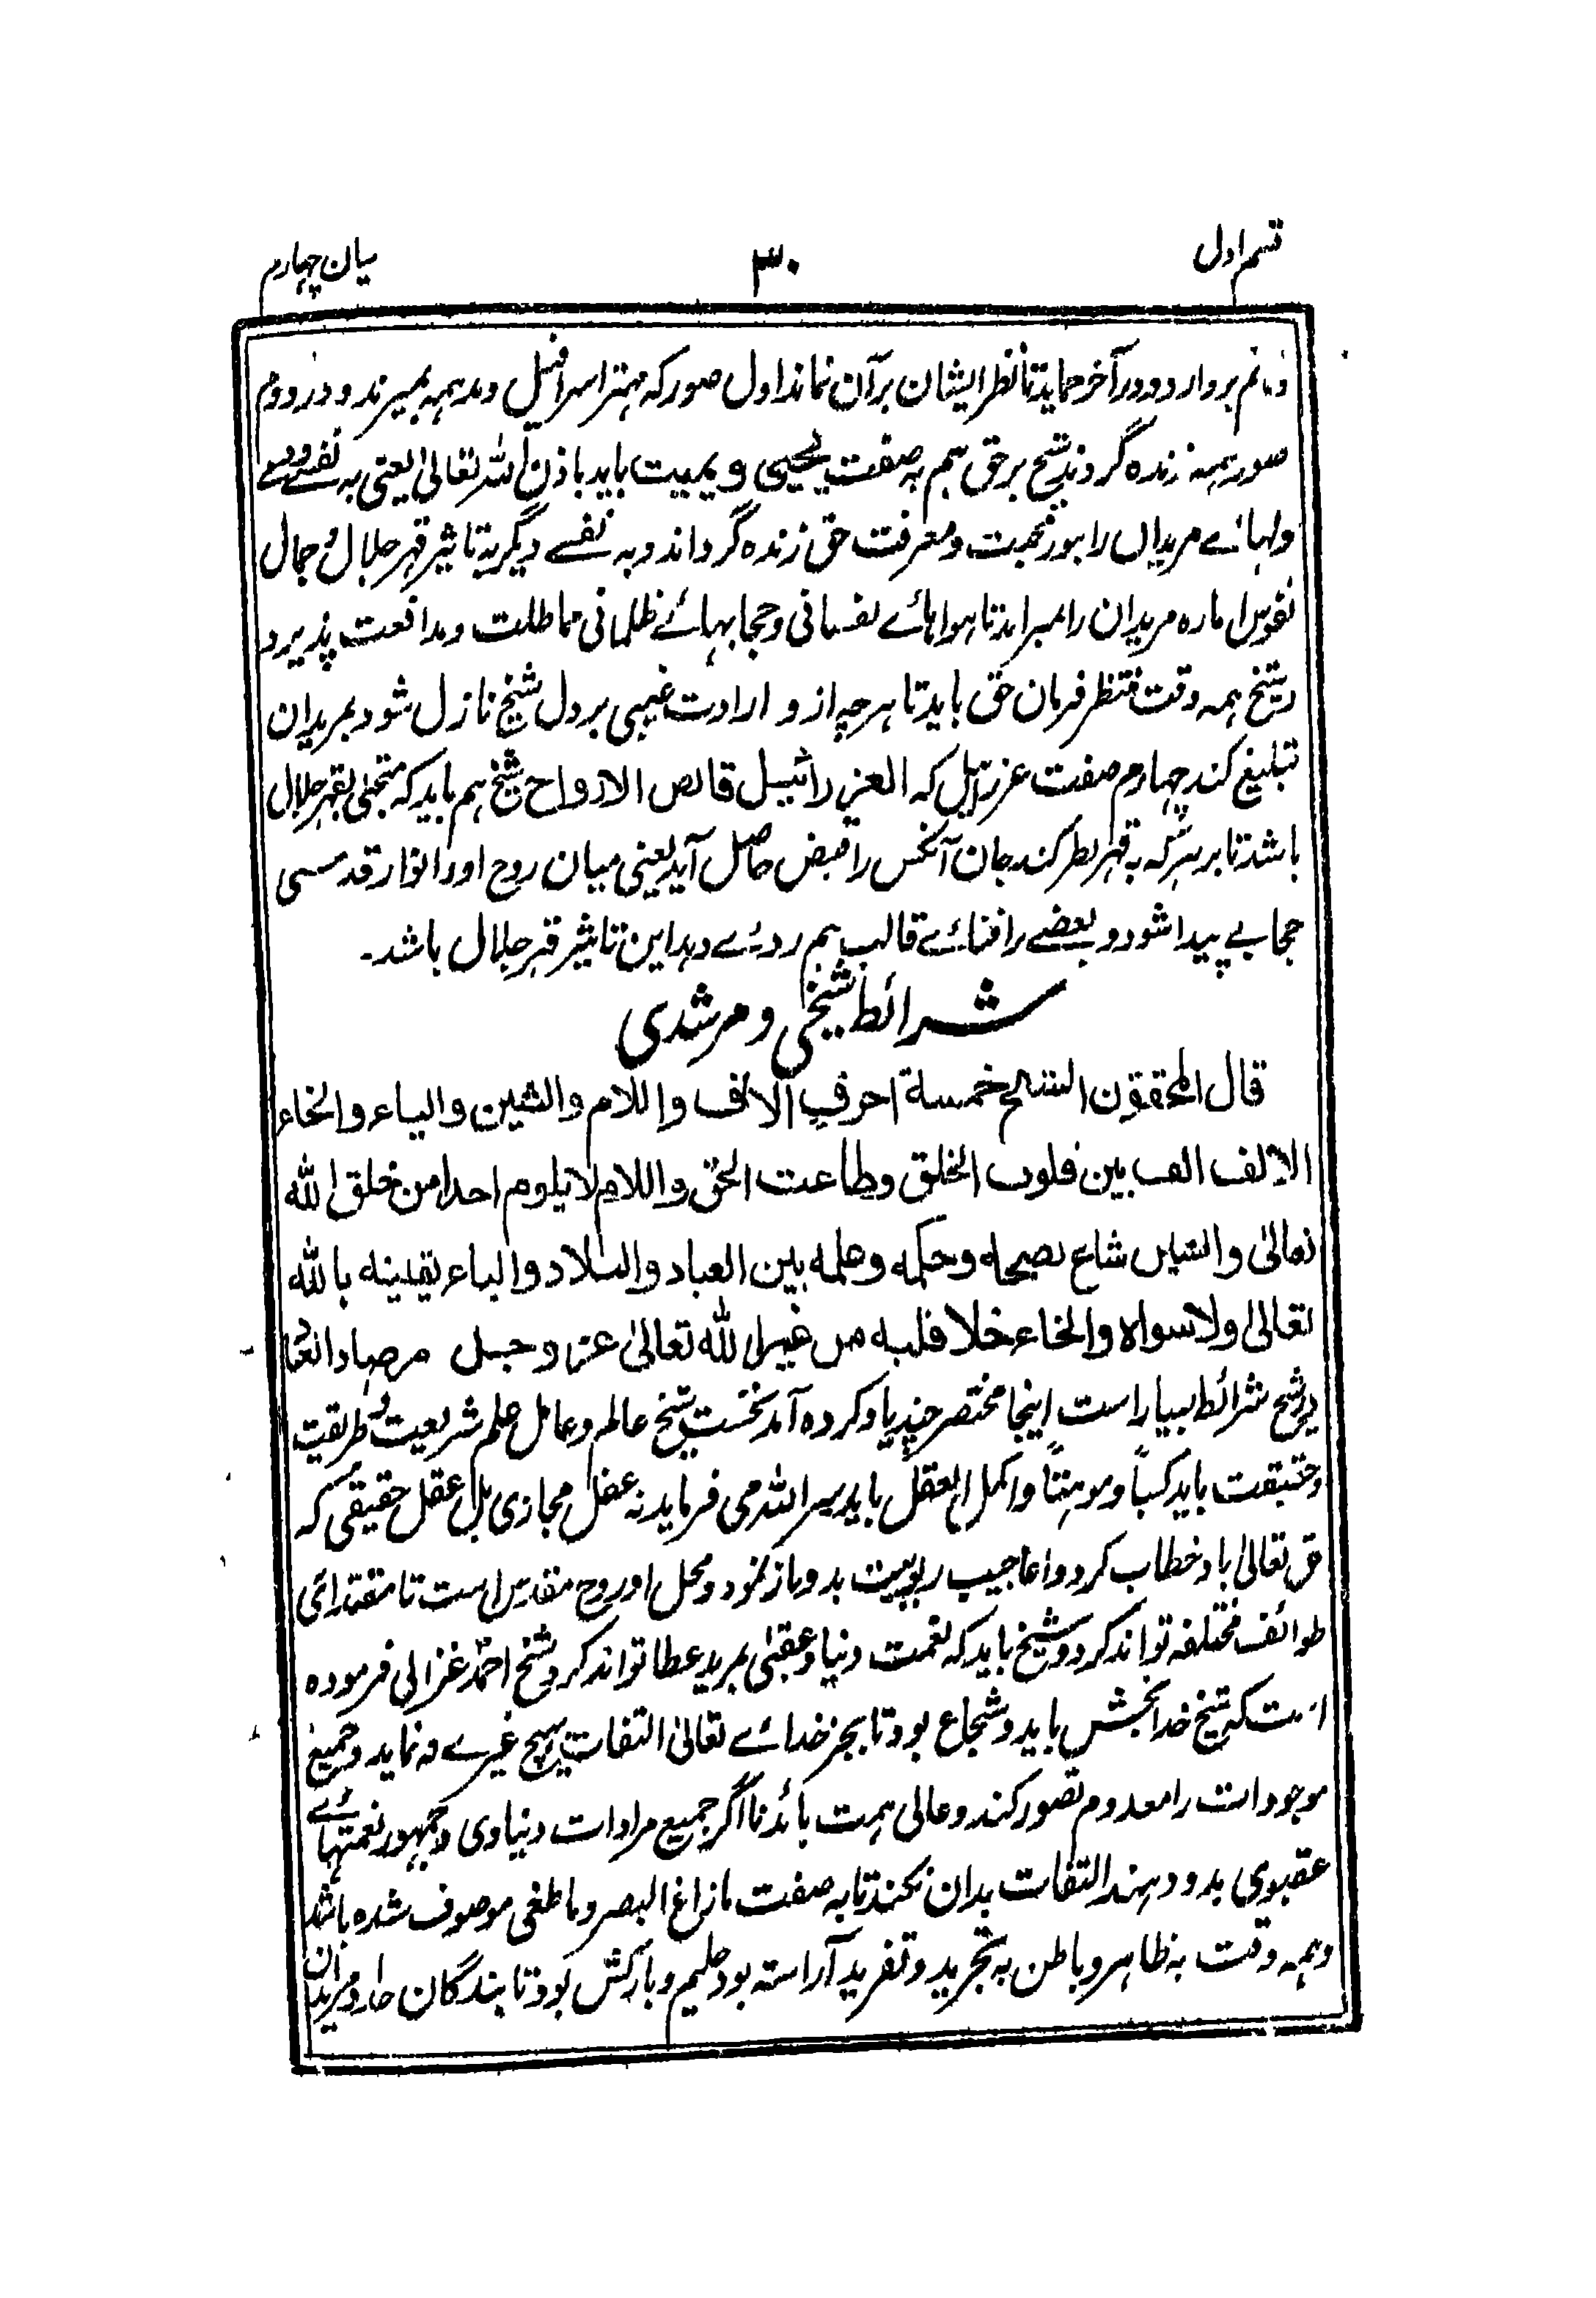 قسم اول
۳۰
بیان چہارم
بردارد و در آخر نماید تا نظر ایشان بر آن نماند اول صور کہ مہتر اسرافیل دمد ہمہ بمیرند و در دوم
صور ہمہ زندہ گردند شیخ برحق ہم بہ صفت یحیی و یمیت باید باذن اللہ تعالیٰ یعنی بہ نفسے
دلہائے مریداں را بنور محبت و معرفت حق زندہ گرداند و بہ نفسے دیگر بہ تاثیر قہر جلال و جمال
نفوس امارہ مریدان را بمیراند تا ہواہائے نفسانی و حجابہائے ظلمانی مماطلت و مدافعت پذیرد
و شیخ ہمہ وقت منتظر فرمان حق باید تا ہرچہ از واردات غیبی بر دل شیخ نازل شود بمریدان
تبلیغ کند چہارم صفت عزرائیل کہ العزرائیل قابض الارواح شیخ ہم باید کہ متجلی بقہر جلال
باشد تا بر ہر کہ بہ قہر نظر کند جان آنکس را قبض حاصل آید یعنی میان روح او و انوار قدسی
حجابے پیدا شود و بعضے را فنائے قالب ہم روئے دہد این تاثیر قہر جلال باشد۔
شرائط شیخی و مرشدی
قال المحققون الشیخ خمسة احرف الالف واللام والشین والیاء والخاء
الالف الف بین قلوب الخلق وطاعت الحق واللام لا یلوم احدا من خلق الله
تعالیٰ والشین شاع نصیحه وحکمه وعلمه بین العباد والبلاد والیاء یقینه بالله
تعالیٰ ولا سواه والخاء خلا قلبه من غیر الله تعالیٰ عز وجل مرصاد العباد
در شیخ شرائط بسیار است اینجا مختصر چند یاد کردہ آمد نخست شیخ عالم و عامل علم شریعت و طریقت
و حقیقت باید کسباً و موہبتاً و اکمل العقل باید سر اللہ می فرماید نہ عقل مجازی بل عقل حقیقی کہ
حق تعالیٰ با او خطاب کرد و اعاجیب ربوبیت بدو باز نمود و محل او روح مقدس است تا مقتدائی
طوائف مختلفہ تواند کرد و شیخ باید کہ نعمت دنیا و عقبیٰ بمرید عطا تواند کرد و شیخ احمد غزالی فرمودہ
است کہ شیخ خدا بخش باید و شجاع بود تا بجز خدائے تعالیٰ التفات بہیچ غیرے نہ نماید و جمیع
موجودات را معدوم تصور کند و عالی ہمت باید تا اگر جمیع مرادات دنیاوی و جمہور نعمتہائے
عقبوی بدو دہند التفات بدان نکند تا بہ صفت ما زاغ البصر و ما طغی موصوف شدہ باشد
و ہمہ وقت بہ ظاہر و باطن بہ تجرید و تفرید آراستہ بود حلیم و بارکش بود تا بندگان خدا و مریدان